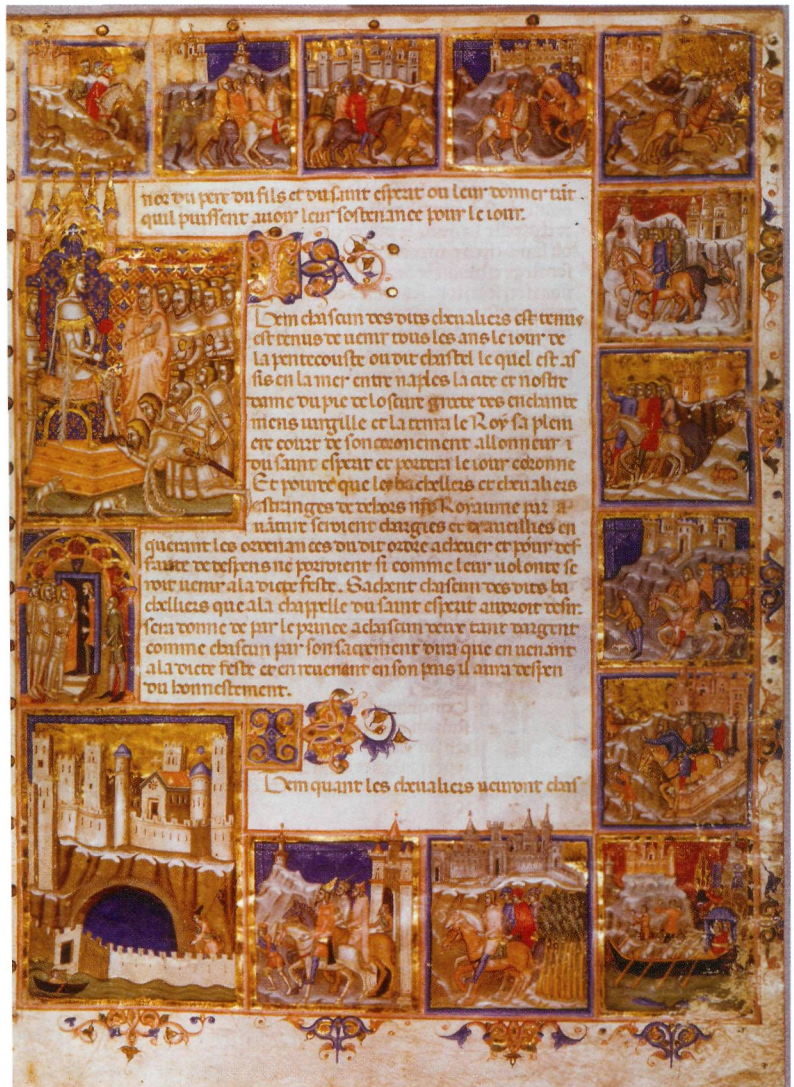 nor du pere du fils et du saint esperit ou leur donner tāt
quil puissent auoir leur sostenance pour le iour.
Item chascun des dits cheualiers est tenus
est tenus de uenir tous les ans le iour de
la pentecouste ou dit chastel le quel est as
sis en la mer entre naples la cite et nostre
dame du pie de
mens uirgille et la tenra le Roy sa pleni
ere court de son coronement allonneur
du saint esperit et portera le iour coronne
Et pource que les bachellers et cheualiers
estranges de dehors Royaume par
uāture seroient chargies et traueillies en
querant les ordenances du dit ordre acheuer et pour def
faute de despens ne porroient si comme leur uolonte se
roit uenir a la dicte feste. Sachent chascun des dits ba
chelliers que a la chappelle du saint esperit
sera donne de par le prince a chascun deux tant dargent
comme chascun par son sacrement dira que en uenant
a la dicte feste et en reuenant en son pais il aura despen
du honnestement.
Item quant les cheualiers uenront chas